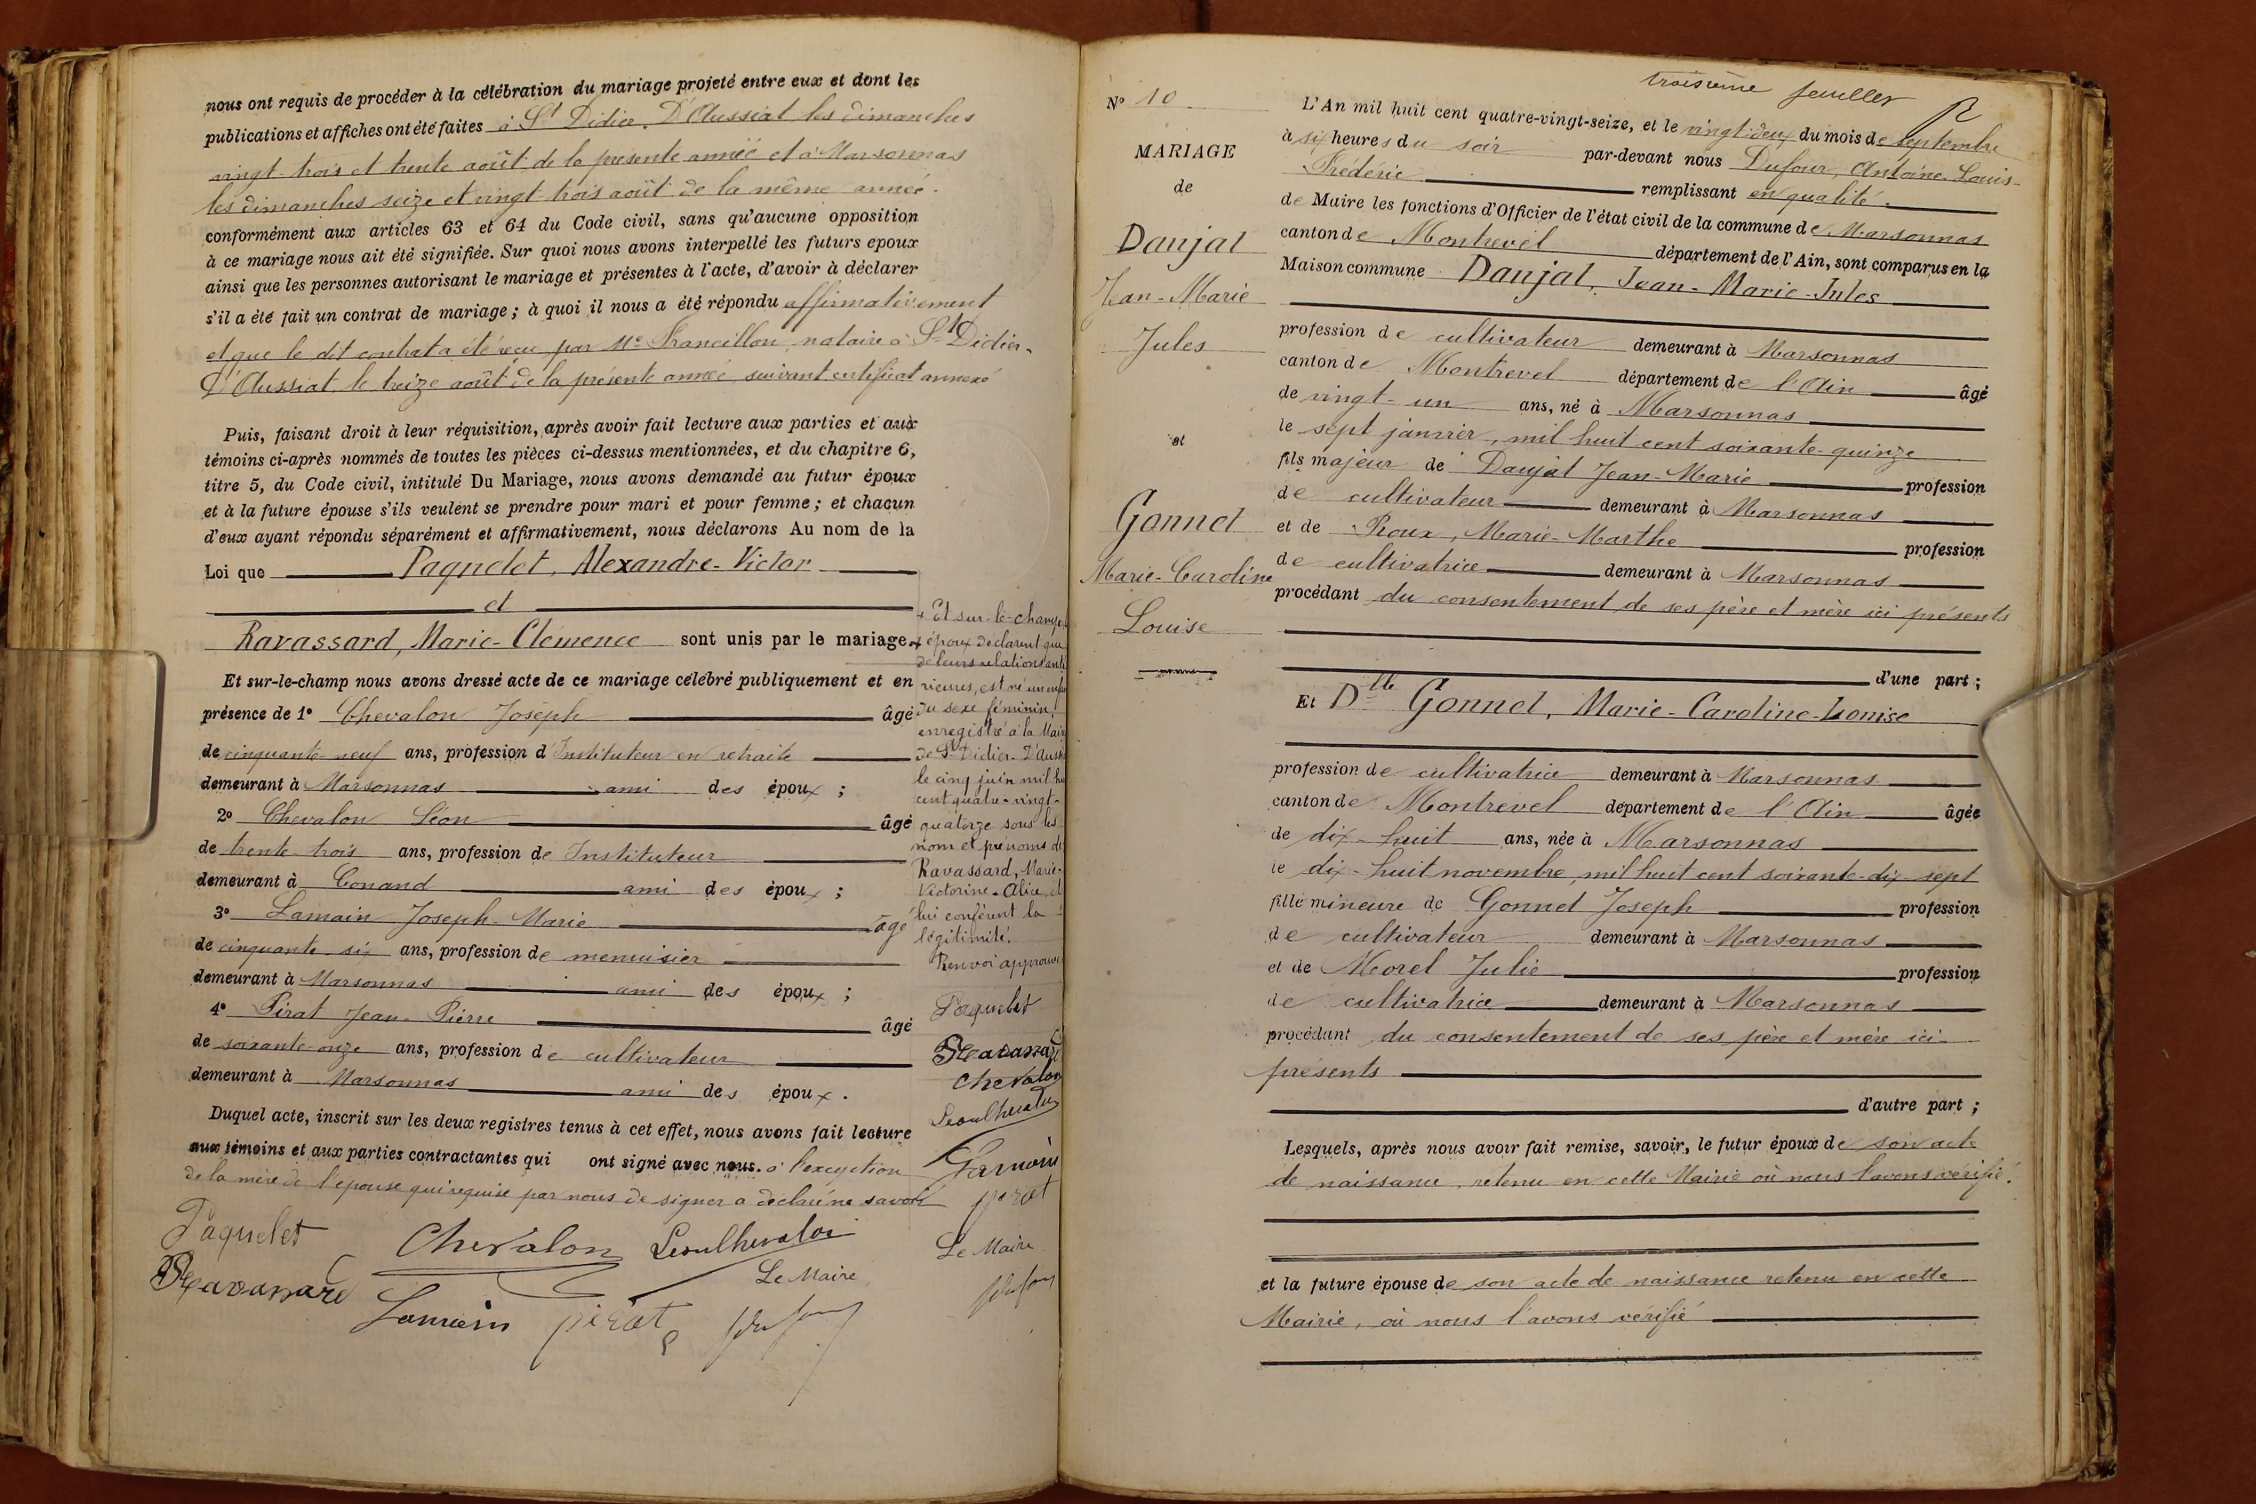 nous ont requis de procéder à la célébration du mariage projeté entre eux et dont les
publications et affiches ont été faites à St Didier. D'Aussiat les dimanches
vingt-trois et trente août de la présente année et à Marsonnas
les dimanches seize et vingt-trois août de la même année.
conformément aux articles 63 et 64 du Code civil, sans qu'aucune opposition
à ce mariage nous ait été signifiée. Sur quoi nous avons interpellé les futurs epoux
ainsi que les personnes autorisant le mariage et présentes à l'acte, d'avoir à déclarer
s'il a été fait un contrat de mariage; à quoi il nous a été répondu affirmativement
et que le dit contrat a été reçu par Me Francillon, notaire à St Didier-
D'Aussiat, le treize août de la présente année suivant certificat annexé
Puis, faisant droit à leur réquisition, après avoir fait lecture aux parties et aux
témoins ci-après nommés de toutes les pièces ci-dessus mentionnées, et du chapitre 6,
titre 5, du Code civil, intitulé Du Mariage, nous avons demandé au futur époux
et à la future épouse s'ils veulent se prendre pour mari et pour femme; et chacun
d'eux ayant répondu séparément et affirmativement, nous déclarons Au nom de la
Loi que Paquelet, Alexandre-Victor
et
Ravassard, Marie-Clémence sont unis par le mariage. +
Et sur-le-champ nous avons dressé acte de ce mariage célébré publiquement et en
présence de 1° Chevalon Joseph âgé
de cinquante-neuf ans, profession d'Instituteur en retraite
demeurant à Marsonnas ami des époux;
2° Chevalon Léon âgé
de trente-trois ans, profession de Instituteur
demeurant à Conand ami des époux;
3° Lamain Joseph-Marie âgé
de cinquante-six ans, profession de menuisier
demeurant à Marsonnas ami des époux;
4° Pirat Jean-Pierre âgé
de soixante-onze ans, profession de cultivateur
demeurant à Marsonnas ami des époux.
Duquel acte, inscrit sur les deux registres tenus à cet effet, nous avons fait lecture
aux témoins et aux parties contractantes qui ont signé avec nous. à l'exception
de la mère de l'épouse qui requise par nous de signer a déclaré ne savoir
Paquelet Chevalon Léon Chevalon
Ravassard Le Maire
Lamain pirat Dufour
+ Et sur-le-champ, l
époux déclarent que
de leurs relations anté
rieures, est né un enfan
du sexe féminin,
enregistré à la Mair
de St Didier-D'Aussi
le cinq juin mil hu
cent quatre-vingt-
quatorze sous les
nom et prénoms de
Ravassard, Marie-
Victorine-Alice, et
lui confèrent la
légitimité.
Renvoi approuvé
Paquelet
Ravassard
Chevalon
Léon Chevalon
Lamain
pirat
Le Maire
Dufour
troisième feuillet
N° 10
MARIAGE
de
Daujat
Jean-Marie
Jules
et
Gonnet
Marie-Caroline
Louise
L'An mil huit cent quatre-vingt-seize, et le vingt-deux du mois de septembre
à six heures du soir par-devant nous Dufour, Antoine-Louis-
Frédéric remplissant en qualité
de Maire les fonctions d'Officier de l'état civil de la commune de Marsonnas
canton de Montrevel département de l'Ain, sont comparus en la
Maison commune Daujat, Jean-Marie-Jules
profession de cultivateur demeurant à Marsonnas
canton de Montrevel département de l'Ain âgé
de vingt-un ans, né à Marsonnas
le sept janvier, mil huit cent soixante-quinze
fils majeur de Daujat Jean-Marie profession
de cultivateur demeurant à Marsonnas
et de Roux, Marie-Marthe profession
de cultivatrice demeurant à Marsonnas
procédant du consentement de ses père et mère ici présents
d'une part;
Et Dlle Gonnet, Marie-Caroline-Louise
profession de cultivatrice demeurant à Marsonnas
canton de Montrevel département de l'Ain âgée
de dix-huit ans, née à Marsonnas
le dix-huit novembre, mil huit cent soixante-dix-sept
fille mineure de Gonnet Joseph profession
de cultivateur demeurant à Marsonnas
et de Morel Julie profession
de cultivatrice demeurant à Marsonnas
procédant du consentement de ses père et mère ici
présents
d'autre part;
Lesquels, après nous avoir fait remise, savoir, le futur époux de son acte
de naissance, retenu en cette Mairie où nous l'avons vérifié.
et la future épouse de son acte de naissance retenu en cette
Mairie, où nous l'avons vérifié